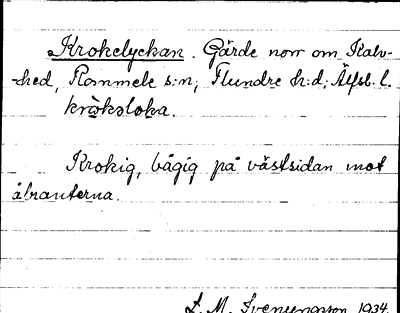 Krokelyckan. Gärde norr om Kalv-
hed, Rommele s:n; Flundre h:d; Älfsb. l.
krȯ̀ksloka.
Krokig, bågig på västsidan mot
åbranterna.
L. M. Svenungsson 1934.